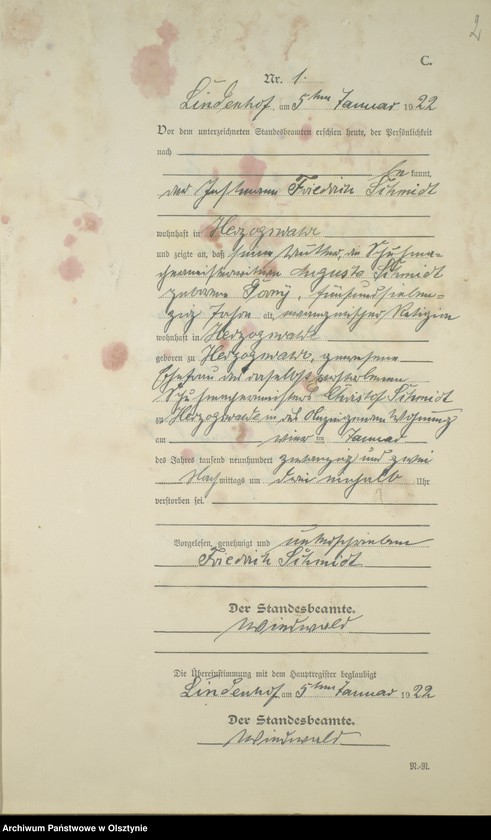 2
C.
Nr. 1.
Lindenhof, am 5ten Januar 1922
Vor dem unterzeichneten Standesbeamten erschien heute, der Persönlichkeit
nach
be kannt,
der Instmann Friedrich Schmidt
wohnhaft in Herzogswalde
und zeigte an, daß seine Mutter, die Schuhma-
chermeisterwitwe Auguste Schmidt
geborene, fünfundsieben-
zig Jahre alt, evangelischer Religion
wohnhaft in Herzogswalde
geboren zu Herzogswalde, gewesene
Ehefrau des daselbst verstorbenen
Schuhmachermeisters Christof Schmidt
zu Herzogswalde in des Anzeigenden Wohnung
am vier ten Januar
des Jahres tausend neunhundert zwanzig und zwei
Nachmittags um drei einhalb Uhr
verstorben sei.
Vorgelesen, genehmigt und unterschrieben
Friedrich Schmidt
Der Standesbeamte.
Die Übereinstimmung mit dem Hauptregister beglaubigt
Lindenhof am 5ten Januar 1922
Der Standesbeamte.
Archiwum Państwowe w Olsztynie